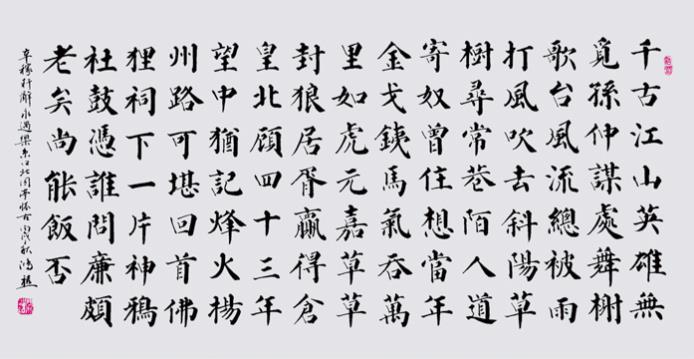 千古江山英雄無
覓孫仲謀處舞榭
歌台風流總被雨
打風吹去斜陽草
樹尋常巷陌人道
寄奴曾住想當年
金戈銕馬氣吞萬
里如虎元嘉草草
封狼居胥贏得倉
皇北顧四十三年
望中猶記烽火揚
州路可堪回首佛
狸祠下一片神鴉
社鼓憑誰問廉頗
老矣尚能飯否
辛稼軒辭永遇樂京口北固亭懷古